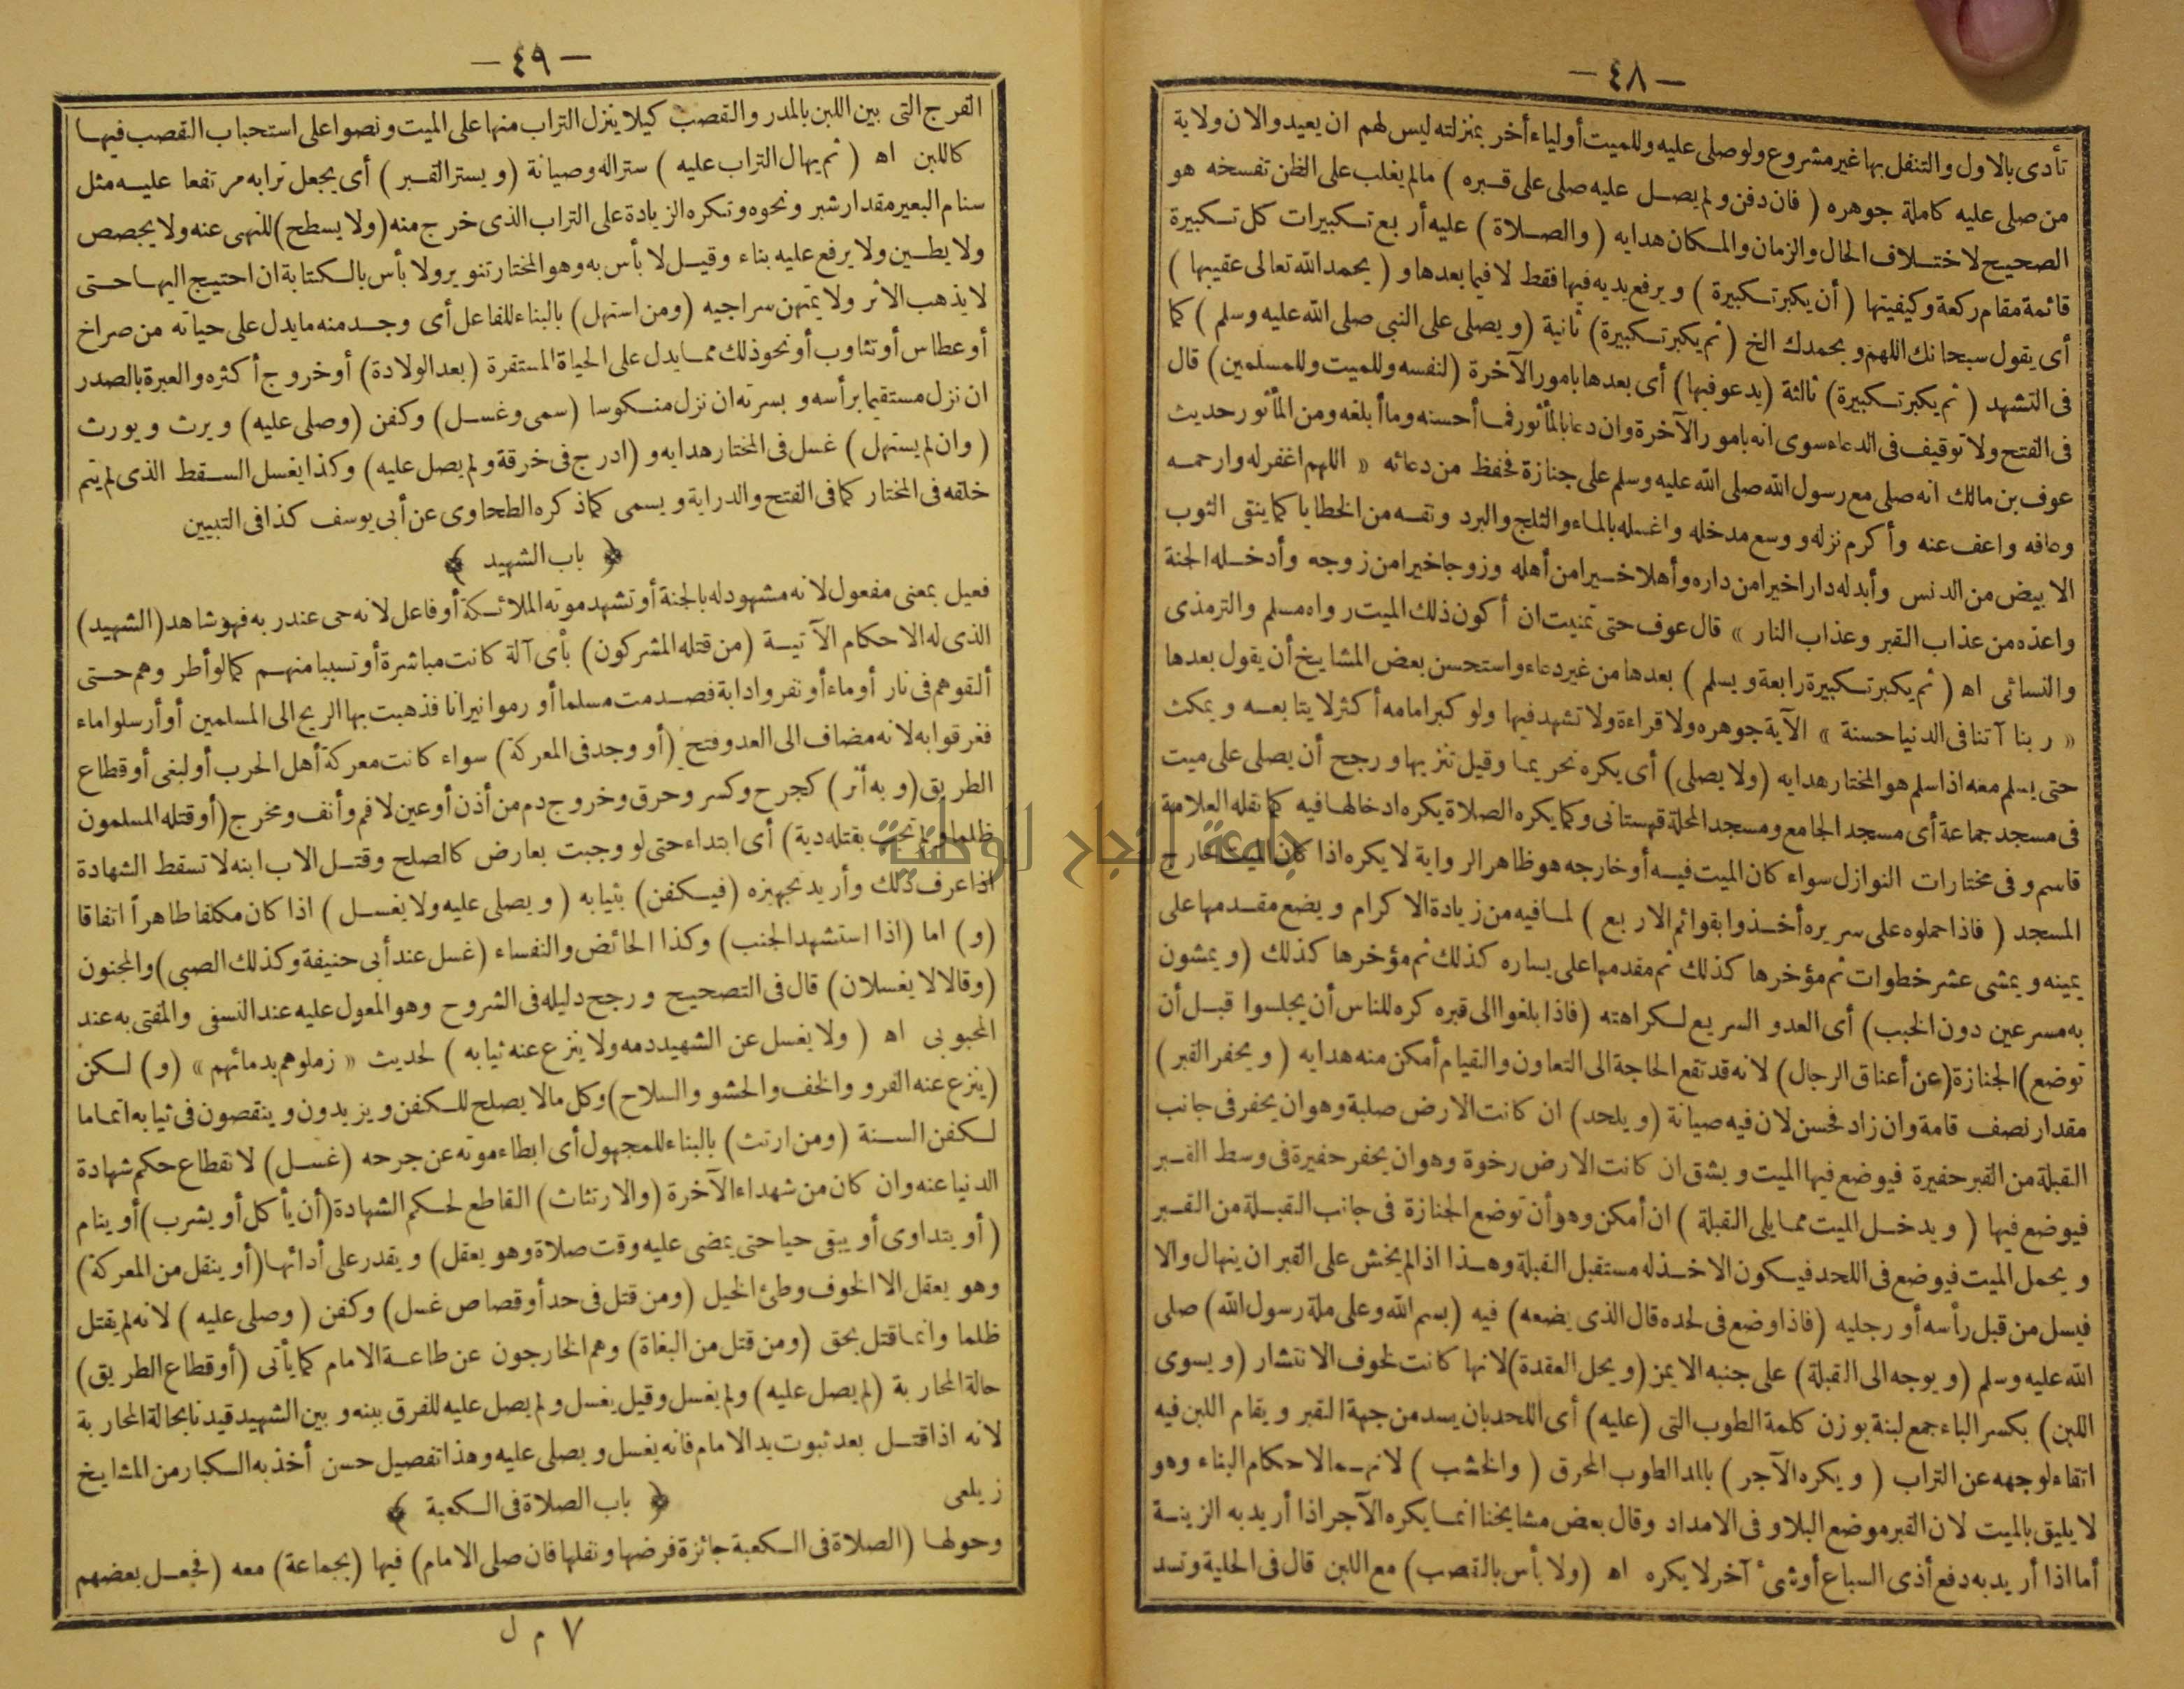 — ٤٨ —
تأدى بالاول والتنفل بها غير مشروع ولو صلى عليه وللميت أولياء أخر بمنزلته ليس لهم ان يعيدوا لان ولاية
من صلى عليه كاملة جوهره ( فان دفن ولم يصل عليه صلى على قبره ) مالم يغلب على الظن تفسخه هو
الصحيح لاختلاف الحال والزمان والمكان هدايه ( والصلاة ) عليه أربع تكبيرات كل تكبيرة
قائمة مقام ركعة وكيفيتها ( أن يكبر تكبيرة ) ويرفع يديه فيها فقط لا فيما بعدها و ( يحمد الله تعالى عقيبها )
أى يقول سبحانك اللهم وبحمدك الخ ( ثم يكبر تكبيرة ) ثانية ( ويصلى على النبي صلى الله عليه وسلم ) كما
فى التشهد ( ثم يكبر تكبيرة ) ثالثة ( يدعو فيها ) أى بعدها بامور الآخرة ( لنفسه وللميت وللمسلمين ) قال
فى الفتح ولا توقيف فى الدعاء سوى انه بامور الآخرة وان دعا بالمأثور فما أحسنه وما أبلغه ومن المأثور حديث
عوف بن مالك انه صلى مع رسول الله صلى الله عليه وسلم على جنازة فحفظ من دعائه « اللهم اغفر له وارحمه
وعافه واعف عنه وأكرم نزله ووسع مدخله واغسله بالماء والثلج والبرد ونقه من الخطايا كما ينقى الثوب
الابيض من الدنس وأبدله دارا خيرا من داره وأهلا خيرا من أهله وزوجا خيرا من زوجه وأدخله الجنة
واعذه من عذاب القبر وعذاب النار » قال عوف حتى تمنيت ان أكون ذلك الميت رواه مسلم والترمذى
والنسائى اه ( ثم يكبر تكبيرة رابعة ويسلم ) بعدها من غير دعاء واستحسن بعض المشايخ أن يقول بعدها
« ربنا آتنا فى الدنيا حسنة » الآية جوهره ولا قراءة ولا تشهد فيها ولو كبر امامه أكثر لا يتابعه ويمكث
حتى يسلم معه اذا سلم هو المختار هدايه ( ولا يصلى ) أى يكره تحريما وقيل تنزيها ورجح أن يصلى على ميت
فى مسجد جماعة أى مسجد الجامع ومسجد المحلة قهستانى وكما يكره الصلاة يكره ادخالها فيه كما نقله العلامة
قاسم وفى مختارات النوازل سواء كان الميت فيه أو خارجه هو ظاهر الرواية لا يكره اذا كان الميت خارج
المسجد ( فاذا حملوه على سريره أخذوا بقوائم الاربع ) لما فيه من زيادة الاكرام ويضع مقدمها على
يمينه ويمشى عشر خطوات ثم مؤخرها كذلك ثم مقدمها على يساره كذلك ثم مؤخرها كذلك ( ويمشون
به مسرعين دون الخبب ) أى العدو السريع لكراهته ( فاذا بلغوا الى قبره كره للناس أن يجلسوا قبل أن
توضع ) الجنازة ( عن أعناق الرجال ) لانه قد تقع الحاجة الى التعاون والقيام أمكن منه هدايه ( ويحفر القبر )
مقدار نصف قامة وان زاد فحسن لان فيه صيانة ( ويلحد ) ان كانت الارض صلبة وهو ان يحفر فى جانب
القبلة من القبر حفيرة فيوضع فيها الميت ويشق ان كانت الارض رخوة وهو ان يحفر حفيرة فى وسط القبر
فيوضع فيها ( ويدخل الميت مما يلى القبلة ) ان أمكن وهو أن توضع الجنازة فى جانب القبلة من القبر
ويحمل الميت فيوضع فى اللحد فيكون الاخذ له مستقبل القبلة وهذا اذا لم يخش على القبر ان ينهال والا
فيسل من قبل رأسه أو رجليه ( فاذا وضع فى لحده قال الذى يضعه ) فيه ( بسم الله وعلى ملة رسول الله ) صلى
الله عليه وسلم ( ويوجه الى القبلة ) على جنبه الايمن ( ويحل العقدة ) لانها كانت لخوف الانتشار ( ويسوى
اللبن ) بكسر الباء جمع لبنة بوزن كلمة الطوب التى ( عليه ) أى اللحد بان يسد من جهة القبر ويقام اللبن فيه
اتقاء لوجهه عن التراب ( ويكره الآجر ) بالمد الطوب المحرق ( والخشب ) لانهما لاحكام البناء وهو
لا يليق بالميت لان القبر موضع البلا وفى الامداد وقال بعض مشايخنا انما يكره الآجر اذا أريد به الزينة
أما اذا أريد به دفع أذى السباع أو شئ آخر لا يكره اه ( ولا بأس بالقصب ) مع اللبن قال فى الحلية وتسد
— ٤٩ —
الفرج التى بين اللبن بالمدر والقصب كيلا ينزل التراب منها على الميت ونصوا على استحباب القصب فيها
كاللبن اه ( ثم يهال التراب عليه ) سترا له وصيانة ( ويستر القبر ) أى يجعل ترابه مرتفعا عليه مثل
سنام البعير مقدار شبر ونحوه وتكره الزيادة على التراب الذى خرج منه ( ولا يسطح ) للنهى عنه ولا يجصص
ولا يطين ولا يرفع عليه بناء وقيل لا بأس به وهو المختار تنوير ولا بأس بالكتابة ان احتيج اليها حتى
لا يذهب الاثر ولا يمتهن سراجيه ( ومن استهل ) بالبناء للفاعل أى وجد منه ما يدل على حياته من صراخ
أو عطاس أو تثاوب أو نحو ذلك مما يدل على الحياة المستقرة ( بعد الولادة ) أو خروج أكثره والعبرة بالصدر
ان نزل مستقيما برأسه وبسرته ان نزل منكوسا ( سمى وغسل ) وكفن ( وصلى عليه ) ويرث ويورث
( وان لم يستهل ) غسل فى المختار هدايه و ( ادرج فى خرقة ولم يصل عليه ) وكذا يغسل السقط الذى لم يتم
خلقه فى المختار كما فى الفتح والدراية ويسمى كما ذكره الطحاوى عن أبى يوسف كذا فى التبيين
﴿ باب الشهيد ﴾
فعيل بمعنى مفعول لانه مشهود له بالجنة أو تشهد موته الملائكة أو فاعل لانه حى عند ربه فهو شاهد ( الشهيد )
الذى له الاحكام الآتية ( من قتله المشركون ) بأى آلة كانت مباشرة أو تسببا منهم كما لو أطروهم حتى
ألقوهم فى نار أو ماء أو نفروا دابة فصدمت مسلما أو رموا نيرانا فذهبت بها الريح الى المسلمين أو أرسلوا ماء
فغرقوا به لانه مضاف الى العدو فتح ( أو وجد فى المعركة ) سواء كانت معركة أهل الحرب أو لبغى أو قطاع
الطريق ( وبه أثر ) كجرح وكسر وحرق وخروج دم من أذن أو عين لا فم وأنف ومخرج ( أو قتله المسلمون
ظلما ولم تجب بقتله دية ) أى ابتداء حتى لو وجبت بعارض كالصلح وقتل الاب ابنه لا تسقط الشهادة
اذا عرف ذلك وأريد تجهيزه ( فيكفن ) بثيابه ( ويصلى عليه ولا يغسل ) اذا كان مكلفا طاهرا اتفاقا
( و ) اما ( اذا استشهد الجنب ) وكذا الحائض والنفساء ( غسل عند أبى حنيفة وكذلك الصبى ) والمجنون
( وقالا لا يغسلان ) قال فى التصحيح ورجح دليله فى الشروح وهو المعول عليه عند النسفى والمفتى به عند
المحبوبى اه ( ولا يغسل عن الشهيد دمه ولا ينزع عنه ثيابه ) لحديث « زملوهم بدمائهم » ( و ) لكن
( ينزع عنه الفرو والخف والحشو والسلاح ) وكل مالا يصلح للكفن ويزيدون وينقصون فى ثيابه اتماما
لكفن السنة ( ومن ارتث ) بالبناء للمجهول أى ابطاء موته عن جرحه ( غسل ) لانقطاع حكم شهادة
الدنيا عنه وان كان من شهداء الآخرة ( والارتثاث ) القاطع لحكم الشهادة ( أن يأكل أو يشرب ) أو ينام
( أو يتداوى أو يبقى حيا حتى يمضى عليه وقت صلاة وهو يعقل ) ويقدر على أدائها ( أو ينقل من المعركة )
وهو يعقل الا لخوف وطئ الخيل ( ومن قتل فى حد أو قصاص غسل ) وكفن ( وصلى عليه ) لانه لم يقتل
ظلما وانما قتل بحق ( ومن قتل من البغاة ) وهم الخارجون عن طاعة الامام كما يأتى ( أو قطاع الطريق )
حالة المحاربة ( لم يصل عليه ) ولم يغسل وقيل يغسل ولم يصل عليه للفرق بينه وبين الشهيد قيدنا بحالة المحاربة
لانه اذا قتل بعد ثبوت يد الامام فانه يغسل ويصلى عليه وهذا تفصيل حسن أخذ به الكبار من المشايخ
زيلعى ﴿ باب الصلاة فى الكعبة ﴾
وحولها ( الصلاة فى الكعبة جائزة فرضها ونفلها فان صلى الامام ) فيها ( بجماعة ) معه ( فجعل بعضهم
٧ م ل
جامعة النجاح الوطنية